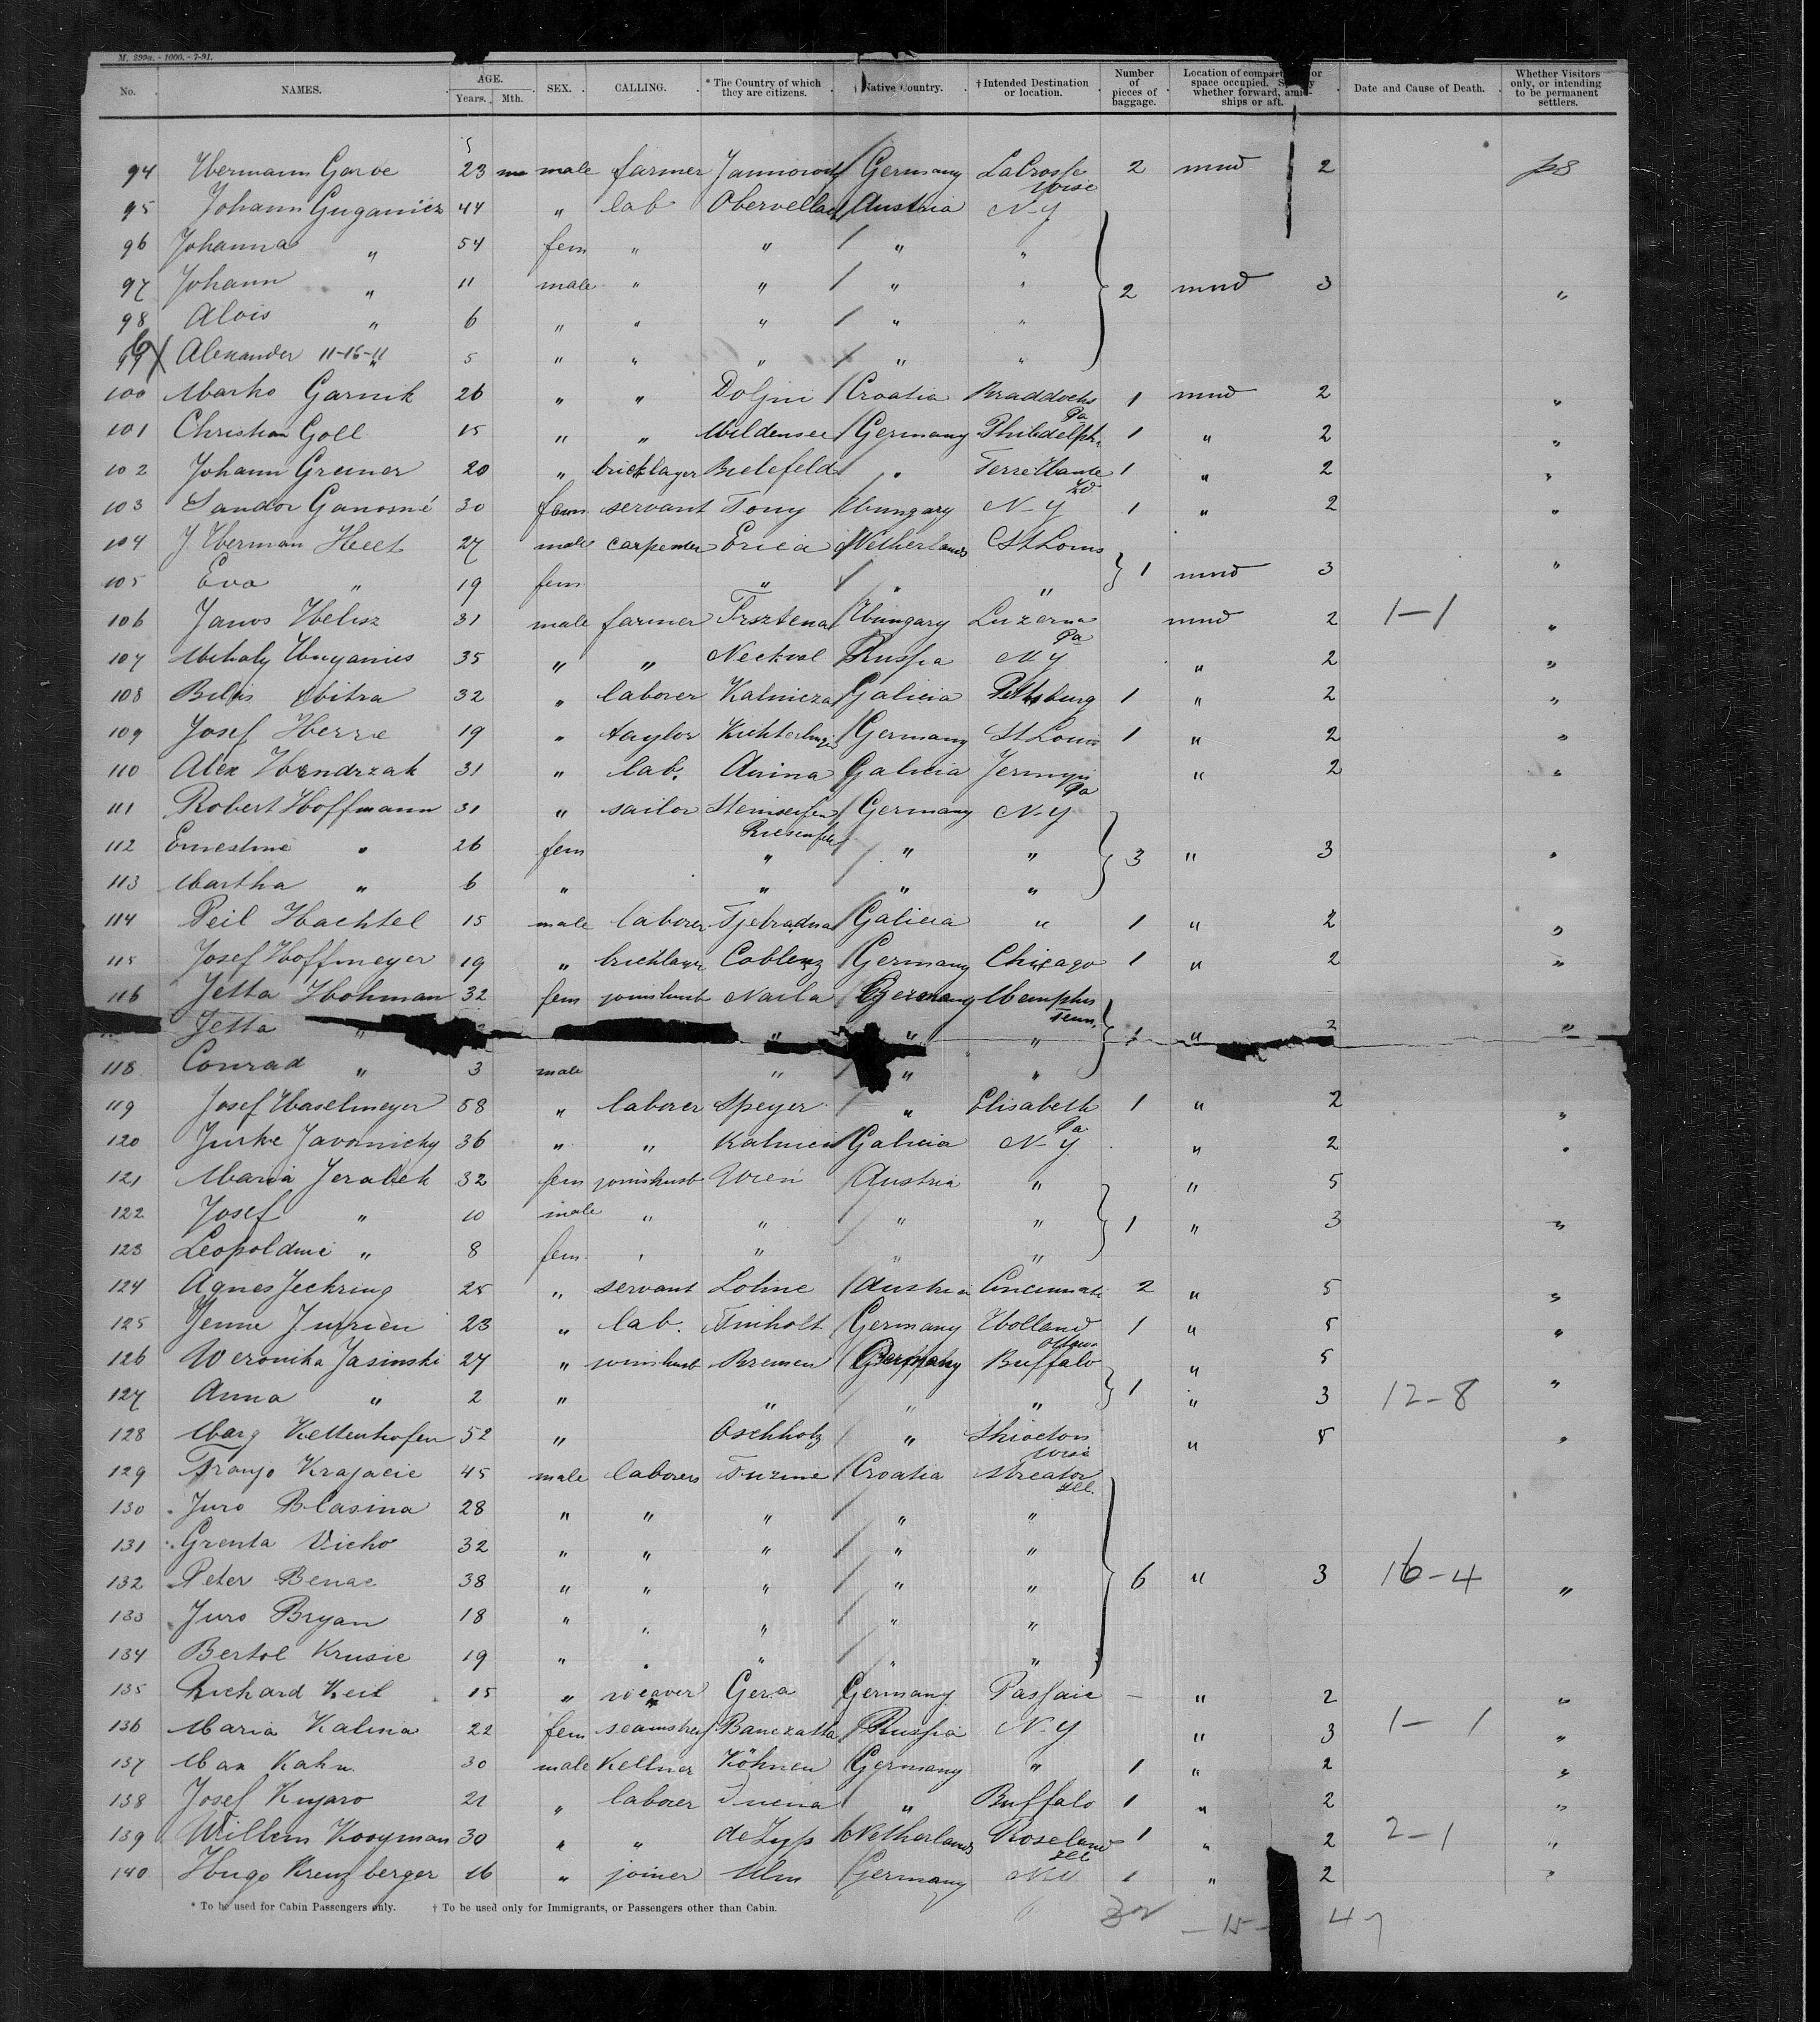 M. 299a. - 1000. - 7-91.
No. NAMES. AGE. Years. Mth. SEX. CALLING. * The Country of which they are citizens. † Native Country. † Intended Destination or location. Number of pieces of baggage. Location of compartment or space occupied. whether forward, amidships or aft. Date and Cause of Death. Whether Visitors only, or intending to be permanent settlers.
94 Hermann Garve 23 male farmer Germany LaCrosse Wisc 2 mnd 2 ps
95 Johann 44 " lab Austria N-Y
96 Johanna " 54 fem " " / " "
97 Johann " 11 male " " / " " 2 mnd 3 "
98 Alois " 6 " " " / " "
99 Alexander 11-16-11 5 " " " / " "
100 Marko Garnik 26 " " Doljni / Croatia Braddocks Pa 1 mnd 2 "
101 Christian Goll 15 " " Wildensee / Germany 1 " 2 "
102 Johann Greiner 20 " bricklayer Bielefeld / " Terre Haute 1 " 2 "
103 Sandor Ganosné 30 fem servant Tony Hungary N-Y 1 " 2 "
104 J Herman Heet 27 male carpenter Erica Netherlands St Louis
105 Eva " 19 fem " / " " 1 mnd 3 "
106 Janos Helisz 31 male farmer Trsztena Hungary Luzerna Pa mnd 2 1-1 "
107 Mihaly 35 " " Russia N Y " 2 "
108 32 " laborer Kalnicza Galicia Pittsburg 1 " 2 "
109 Josef Herre 19 " taylor / Germany St Louis 1 " 2 "
110 Alex Hendrzak 31 " lab. Galicia Jermyn Pa " 2 "
111 Robert Hoffmann 31 " sailor Steinseifen / Germany N-Y
112 Ernestine " 26 fem Riesenfeld " / " " 3 " 3 "
113 Martha " 6 " " / " "
114 Peil Hachtel 15 male laborer / Galicia " 1 " 2 "
115 Josef Hoffmeyer 19 " bricklayer Coblenz / Germany Chicago 1 " 2 "
116 Jetta Hohman 32 fem joinshusb Naila Germany Memphis Tenn.
Jetta " " " " 1 " 2 "
118 Conrad " 3 male " / " "
119 Josef Haselmeyer 58 " laborer Speyer / " Elisabeth Pa 1 " 2 "
120 Jurke Javornicky 36 " " / Galicia N-Y " 2 "
121 Maria Jerabek 32 fem joinshusb Wien / Austria " " 5
122 Josef " 10 male " " / " " 1 " 3 "
123 Leopoldine " 8 fem " " / " "
124 Agnes Jechring 25 " servant Lohne / Austria Cincinnati 2 " 5 "
125 Jenne Jurrien 23 " lab. Germany Holland 1 " 5 "
126 Weronika Jasinski 27 " joinshusb Bremen Germany Buffalo " 5
127 Anna " 2 " " / " " 1 " 3 12-8 "
128 Marg Kellenhofen 52 " Oschholz / " Shiocton Wisc " 5 "
129 Franjo Krajacic 45 male laborers Fuzine / Croatia Streator Ill.
130 Juro Blasina 28 " " " / " "
131 Grenta Vicko 32 " " " / " "
132 Peter Benac 38 " " " / " " 6 " 3 16-4 "
133 Juro Bryan 18 " " " / " "
134 Bertol Krusic 19 " " " / " "
135 Richard Keil 15 " weaver Gera Germany Passaic - " 2 "
136 Maria Kalina 22 fem seamstress Banczatta Russia N-Y " 3 1-1 "
137 Max Kahn 30 male Kellner Köhnen Germany " 1 " 2 "
138 Josef Kujaro 21 " laborer / " Buffalo 1 " 2 "
139 Willem Kooyman 30 " " de Zyp Netherlands Roseland Ill 1 " 2 2-1 "
140 Hugo Kreuzberger 16 " joiner Ulm Germany 1 " 2 "
* To be used for Cabin Passengers only. † To be used only for Immigrants, or Passengers other than Cabin.
-15- 47